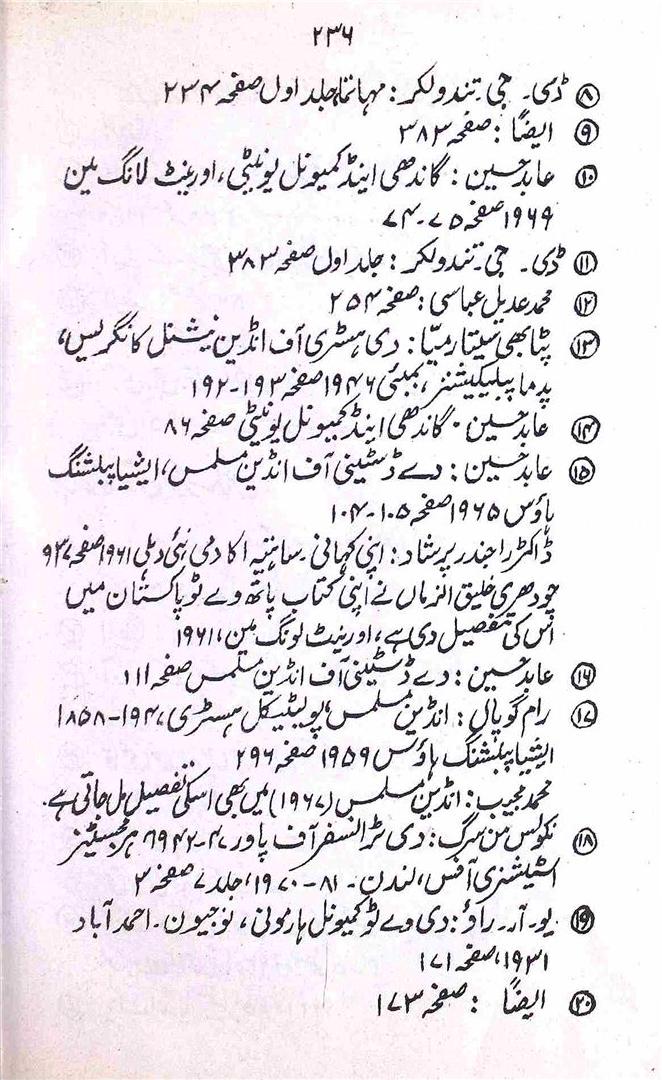 ۲۳۶
⑧ ڈی۔ جی۔ تندولکر : مہاتما، جلد اول صفحہ ۲۳۴
⑨ ایضاً : صفحہ ۳۸۳
⑩ عابد حسین : گاندھی اینڈ کمیونل یونیٹی، اورینٹ لانگ مین
۱۹۶۹ صفحہ ۷۵۔۷۴
⑪ ڈی۔ جی۔ تندولکر : جلد اول صفحہ ۳۸۳
⑫ محمد عدیل عباسی : صفحہ ۲۵۴
⑬ پٹابھی سیتارمیّا : دی ہسٹری آف انڈین نیشنل کانگریس،
پدما پبلیکیشنز، بمبئی ۱۹۴۶ صفحہ ۱۹۳۔۱۹۲
⑭ عابد حسین۔ گاندھی اینڈ کمیونل یونیٹی صفحہ ۸۶
⑮ عابد حسین : دے ڈسٹینی آف انڈین مسلمس، ایشیا پبلشنگ
ہاؤس ۱۹۶۵ صفحہ ۱۰۵۔۱۰۴
ڈاکٹر راجندر پرشاد : اپنی کہانی۔ ساہتیہ اکادمی نئی دہلی ۱۹۶۱ صفحہ ۹۳۷
چودھری خلیق الزماں نے اپنی کتاب پاتھ وے ٹو پاکستان میں
اس کی تفصیل دی ہے، اورینٹ لونگ مین، ۱۹۶۱
⑯ عابد حسین : دے ڈسٹینی آف انڈین مسلمس صفحہ ۱۱۱
⑰ رام گوپال : انڈین مسلمس، پولیٹیکل ہسٹری ۱۹۴۷۔۱۸۵۸
ایشیا پبلشنگ ہاؤس ۱۹۵۹ صفحہ ۲۹۶
محمد مجیب : انڈین مسلمس (۱۹۶۷) میں بھی اسکی تفصیل مل جاتی ہے۔
⑱ نکولس من سرگ : دی ٹرانسفر آف پاور ۴۷۔۱۹۴۲ ہر مجسٹیز
اسٹیشنری آفس، لندن۔ ۸۱۔۱۹۷۰، جلد ۷ صفحہ ۳
⑲ یو۔ آر۔ راؤ : دی وے ٹو کمیونل ہارمونی، نوجیون۔ احمد آباد
۱۹۳۱، صفحہ ۱۷۱
⑳ ایضاً : صفحہ ۱۷۳